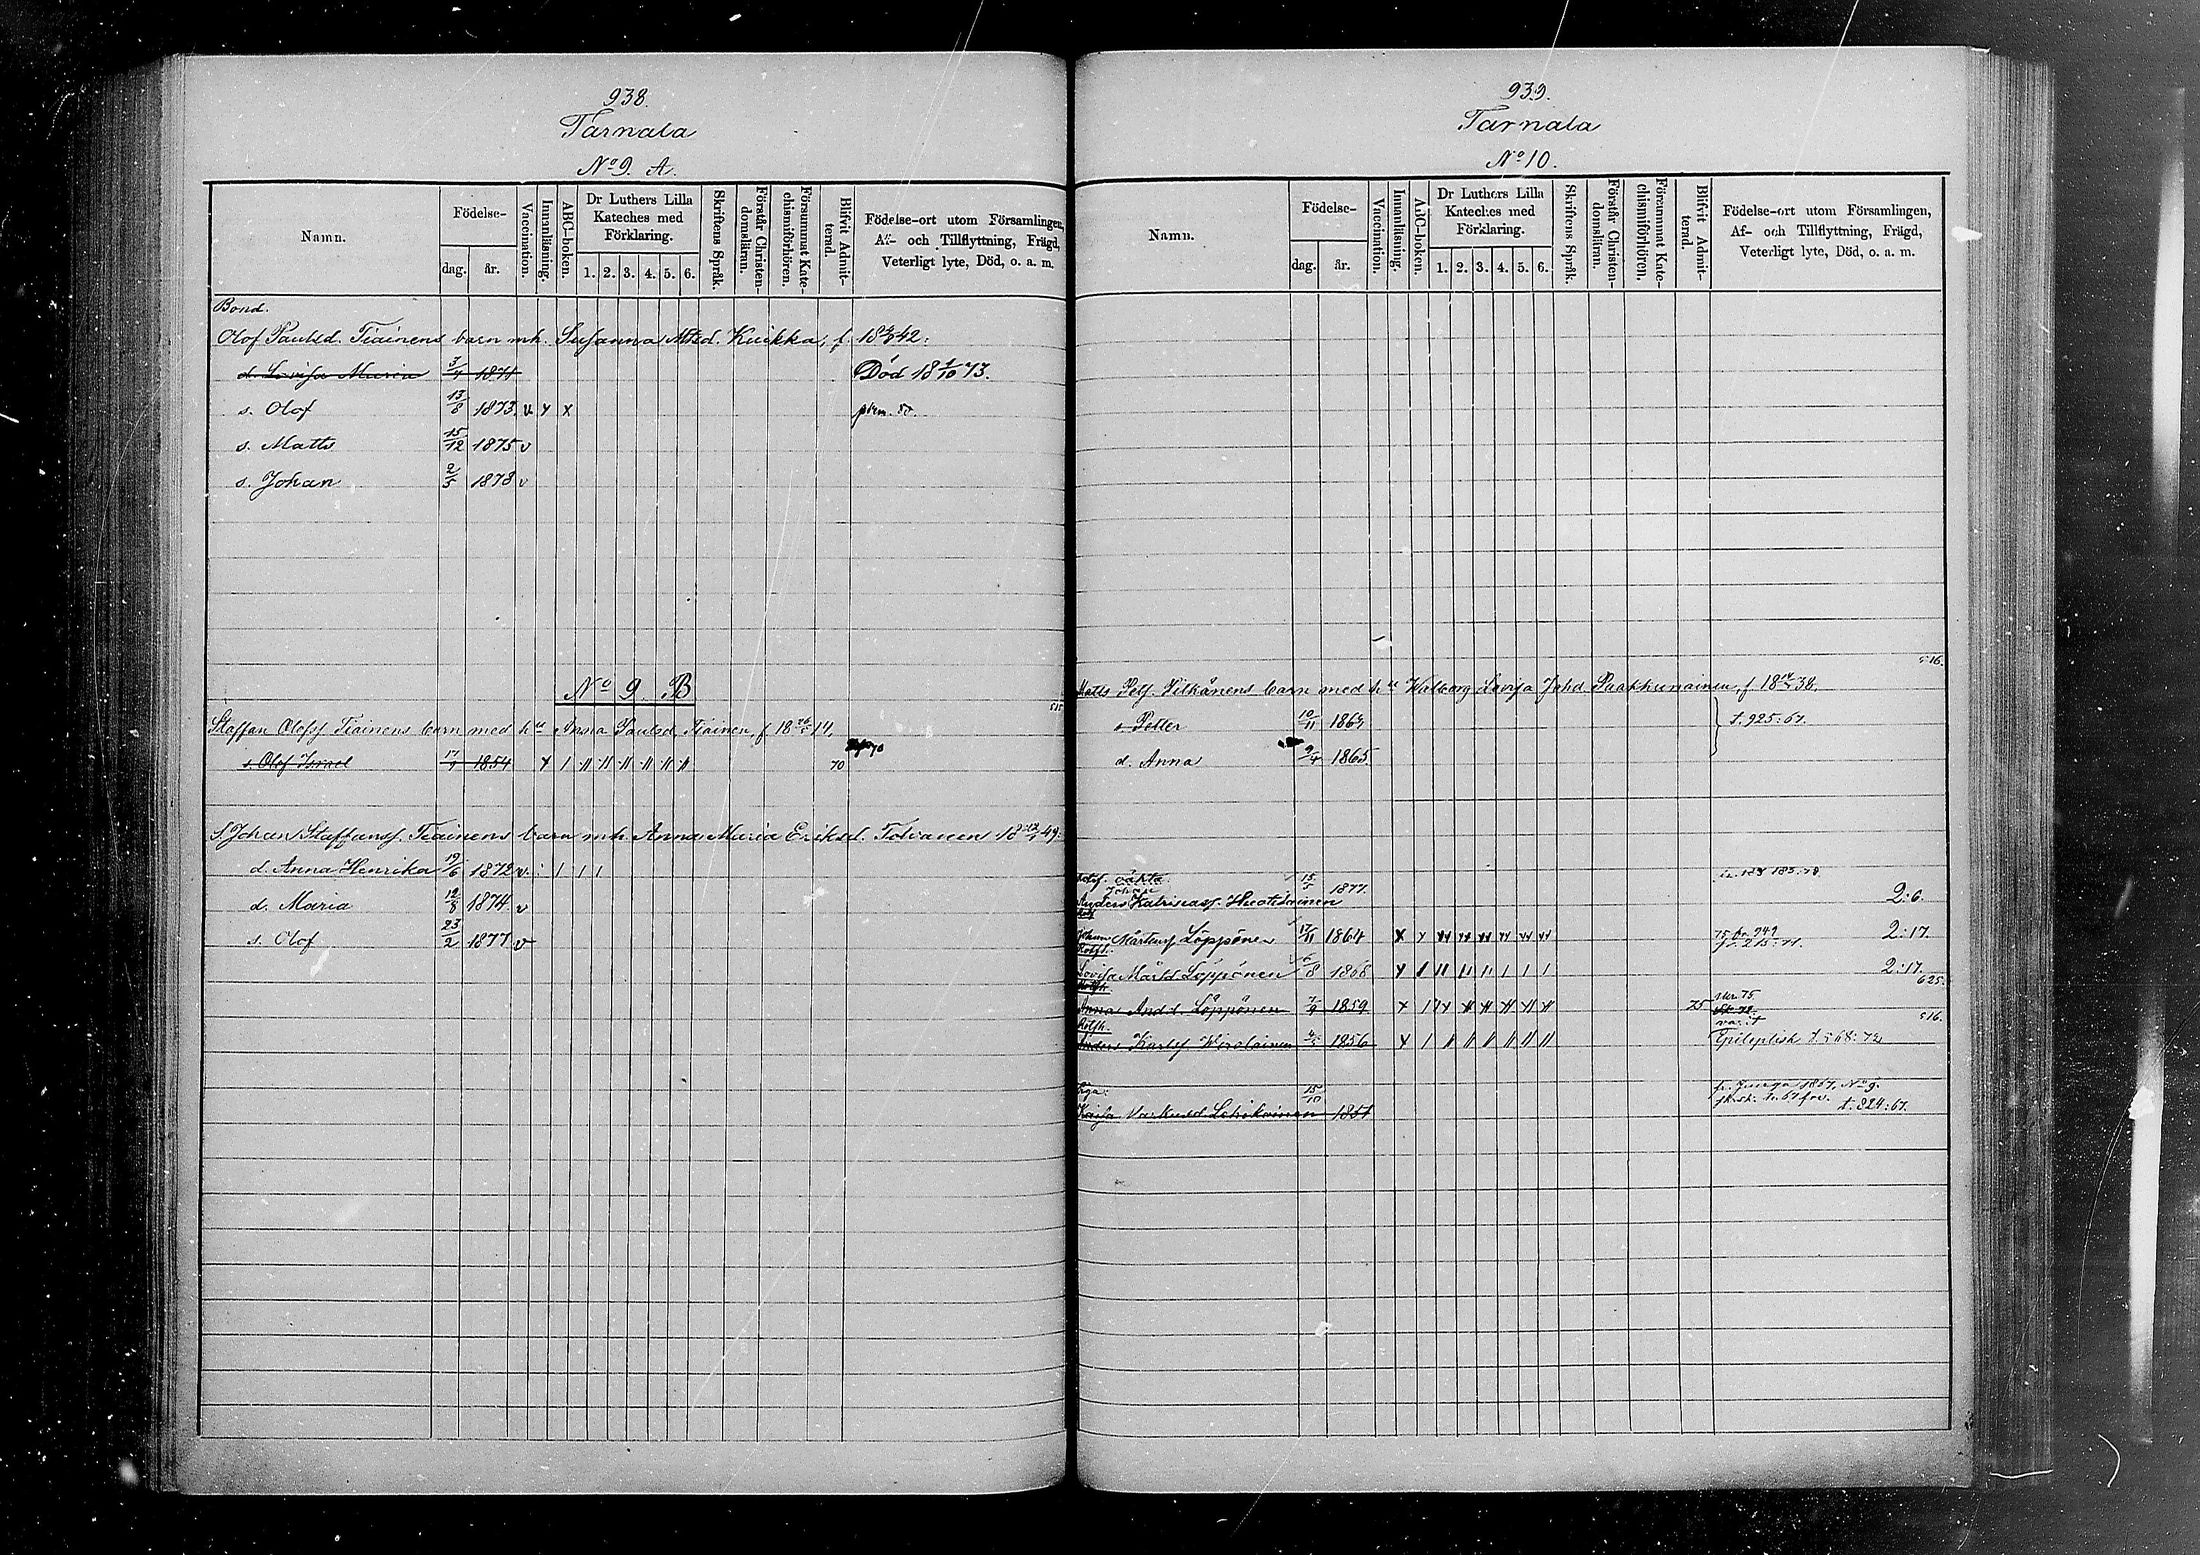 938.
Tarnala
No 9. A.
Namn.
Födelse-
dag.
år.
Vaccination.
Innanläsning.
ABC-boken.
Dr Luthers Lilla
Kateches med
Förklaring.
1. 2. 3. 4. 5. 6.
Skriftens Språk.
Förstår Christen-
domsläran.
Försummat Kate-
chismiförhören.
Blifvit Admit-
terad.
Födelse-ort utom Församlingen,
Af- och Tillflyttning, Frägd,
Veterligt lyte, Död, o. a. m.
Bond.
Olof Paulsd. Tiainens barn mh. Susanna Kuikka, f. 42.
d. Lovisa Maria 1871 Död 18 4/10 73.
s. Olof 13/8 1873 v x x 80
s. Matts 15/12 1875 v
s. Johan 2/5 1878 v
No 9 B
Staffan Olofsf Tiainens barn med hu Anna Paulsd Tiainen, f 18 14,
s. Olof Israel 1854 70
s. Johan Staffansf. Tiainens barn mh. Anna Maria Eriksd. Toivanen 18 49.
d. Anna Henrika 19/6 1872 v
d. Maria 12/8 1874 v
s. Olof 23/2 1877 v
939.
Tarnala
No 10.
Namn.
Födelse-
dag.
år.
Vaccination.
Innanläsning.
ABC-boken.
Dr Luthers Lilla
Kateches med
Förklaring.
1. 2. 3. 4. 5. 6.
Skriftens Språk.
Förstår Christen-
domsläran.
Försummat Kate-
chismiförhören.
Blifvit Admit-
terad.
Födelse-ort utom Församlingen,
Af- och Tillflyttning, Frägd,
Veterligt lyte, Död, o. a. m.
516.
Matts Petf. Pitkänens barn med hu Walborg Lovisa Johd. Paakkunainen, f 18 38.
s. Petter 10/11 1863 t. 925:67.
d. Anna 9/4 1865.
oäkta
Johan 1877.
Anders Katrinasf. Huotilainen 2:6.
Johan Mårtensf Löppönen 17/11 1864 2:17.
Lovisa Mårtd Löppönen 8 1868 2:17.
625.
Anna Andd. Löppönen 7/9 1859 75
516.
Anders Karlsf Wirolainen 1856 Epileptisk t. 568:72
15/10 fr. 1867, No 9.
Kaisa Markusd. Lehikoinen 1851 t. 824:67.